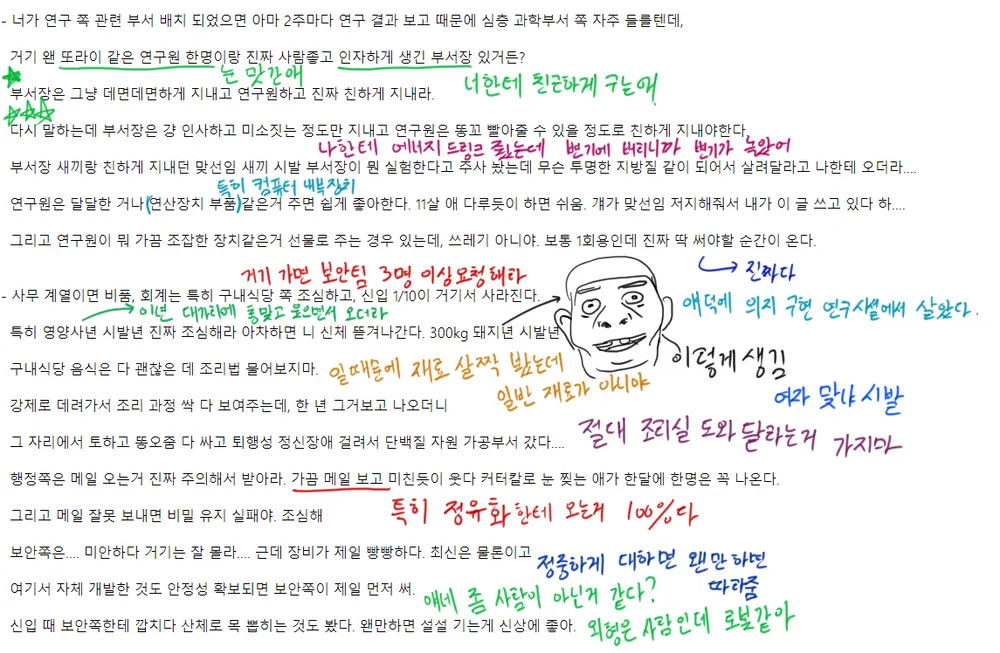 - 너가 연구 쪽 관련 부서 배치 되었으면 아마 2주마다 연구 결과 보고 때문에 심층 과학부서 쪽 자주 들를텐데,
거기 왠 또라이 같은 연구원 한명이랑 진짜 사람좋고 인자하게 생긴 부서장 있거든?
눈 맛간애
너한테 친근하게 구는애
부서장은 그냥 데면데면하게 지내고 연구원하고 진짜 친하게 지내라.
다시 말하는데 부서장은 걍 인사하고 미소짓는 정도만 지내고 연구원은 똥꼬 빨아줄 수 있을 정도로 친하게 지내야한다
나한테 에너지 드링크 줬는데 변기에 버리니까 변기가 녹았어
부서장 새끼랑 친하게 지내던 맞선임 새끼 시발 부서장이 뭔 실험한다고 주사 놨는데 무슨 투명한 지방질 같이 되어서 살려달라고 나한테 오더라....
특히 컴퓨터 내부장치
연구원은 달달한 거나(연산장치 부품)같은거 주면 쉽게 좋아한다. 11살 애 다루듯이 하면 쉬움. 걔가 맞선임 저지해줘서 내가 이 글 쓰고 있다 하....
그리고 연구원이 뭐 가끔 조잡한 장치같은거 선물로 주는 경우 있는데, 쓰레기 아니야. 보통 1회용인데 진짜 딱 써야할 순간이 온다.
진짜다
거기 가면 보안팀 3명 이상 요청해라
얘덕에 의지 구현 연구시설에서 살았다.
- 사무 계열이면 비품, 회계는 특히 구내식당 쪽 조심하고, 신입 1/10이 거기서 사라진다.
이년 대가리에 총맞고 웃으면서 오더라
특히 영양사년 시발년 진짜 조심해라 아차하면 니 신체 뜯겨나간다. 300kg 돼지년 시발년
이렇게 생김
구내식당 음식은 다 괜찮은 데 조리법 물어보지마.
일때문에 재료 살짝 봤는데
일반 재료가 아니야
여자 맞냐 시발
강제로 데려가서 조리 과정 싹 다 보여주는데, 한 년 그거보고 나오더니
절대 조리실 도와달라는거 가지마
그 자리에서 토하고 똥오줌 다 싸고 퇴행성 정신장애 걸려서 단백질 자원 가공부서 갔다....
행정쪽은 메일 오는거 진짜 주의해서 받아라. 가끔 메일 보고 미친듯이 웃다 커터칼로 눈 찢는 애가 한달에 한명은 꼭 나온다.
그리고 메일 잘못 보내면 비밀 유지 실패야. 조심해
특히 정유화한테 오는거 100%다
보안쪽은.... 미안하다 거기는 잘 몰라.... 근데 장비가 제일 빵빵하다. 최신은 물론이고
정중하게 대하면 왠만하면 따라줌
여기서 자체 개발한 것도 안정성 확보되면 보안쪽이 제일 먼저 써.
얘네 좀 사람이 아닌거 같다?
신입 때 보안쪽한테 깝치다 산체로 목 뽑히는 것도 봤다. 왠만하면 설설 기는게 신상에 좋아.
외형은 사람인데 로봇같아